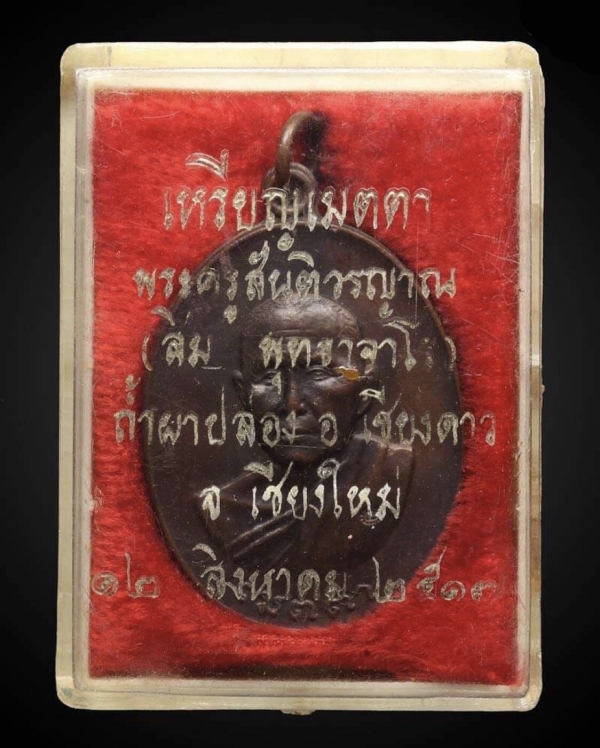 เหรียญเมตตา
พระครูสันติวรญาณ
(สิม พุทธาจาโร)
ถ้ำผาปล่อง อ เชียงดาว
จ เชียงใหม่
๑๒ สิงหาคม ๒๕๑๗